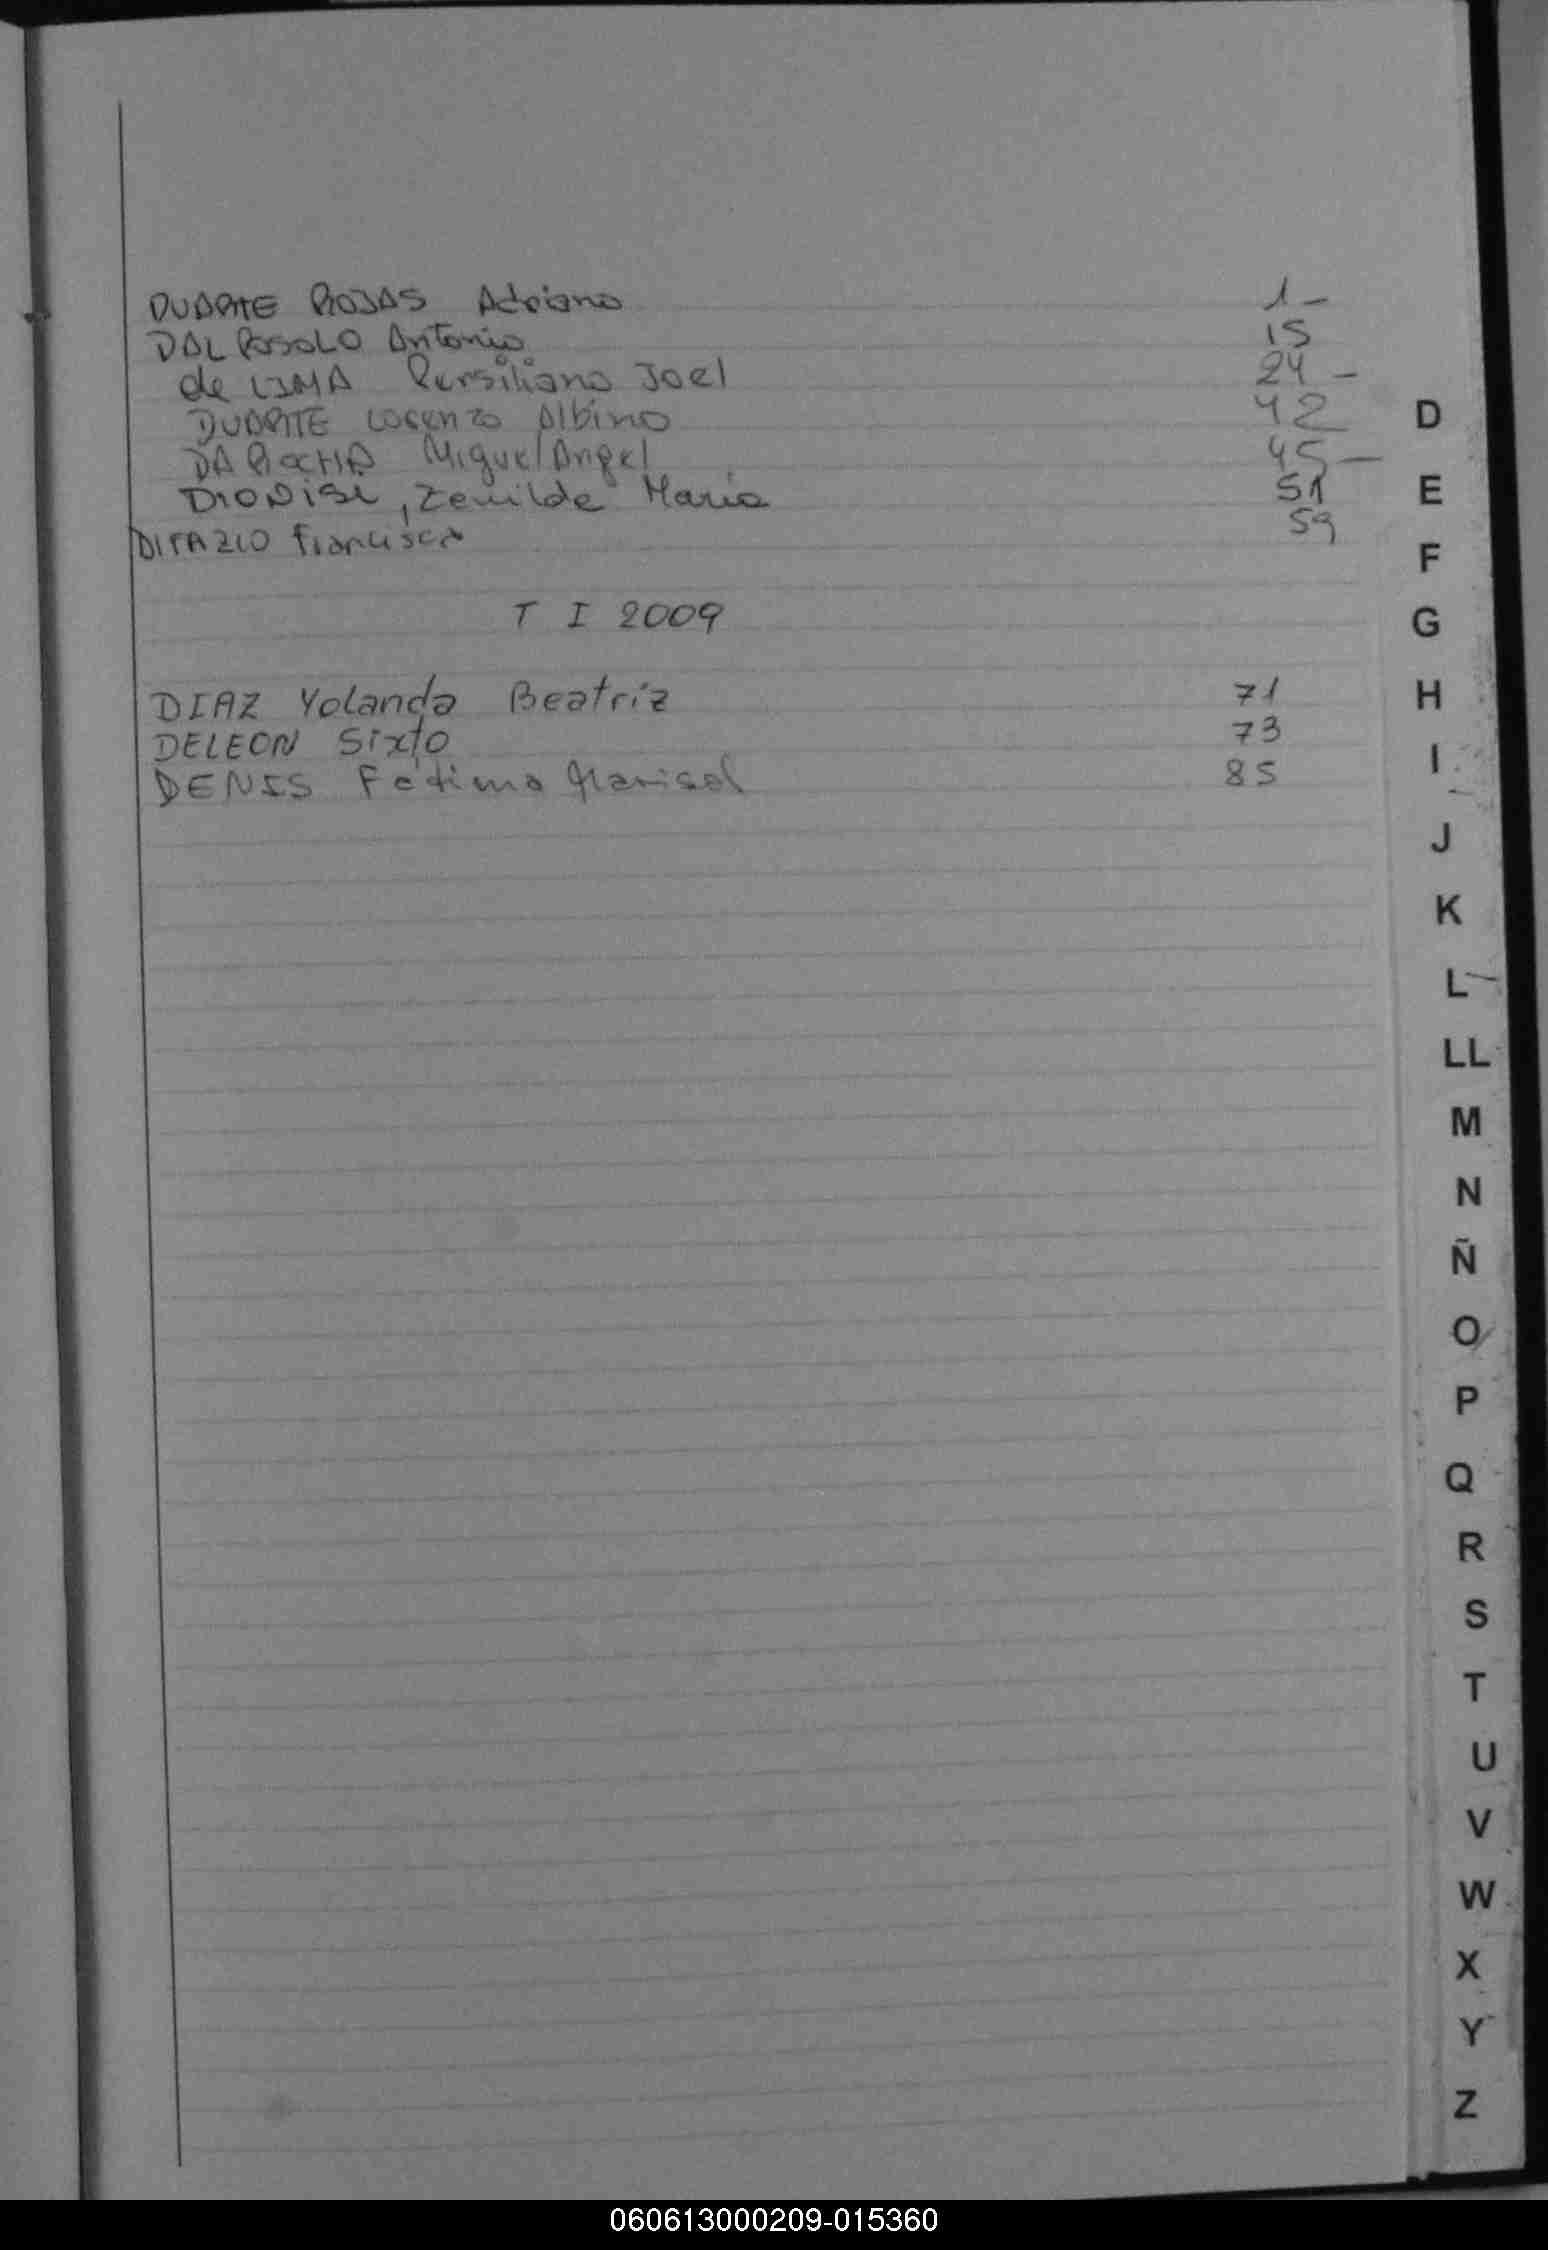 DUARTE ROJAS Adriano 1 -
DAL Posolo Antonio 15
de LIMA Persiliano Joel 24 -
DUARTE Lorenzo Albino 42
DA ROCHA Miguel Angel 45 -
DIONISI, Zenilde Maria 51
DITAZIO Francisco 59
T I 2009
DIAZ Yolanda Beatriz 71
DELEON Sixto 73
DENIS Fátima Marisol 85
D
E
F
G
H
I
J
K
L
LL
M
N
Ñ
O
P
Q
R
S
T
U
V
W
X
Y
Z
060613000209-015360